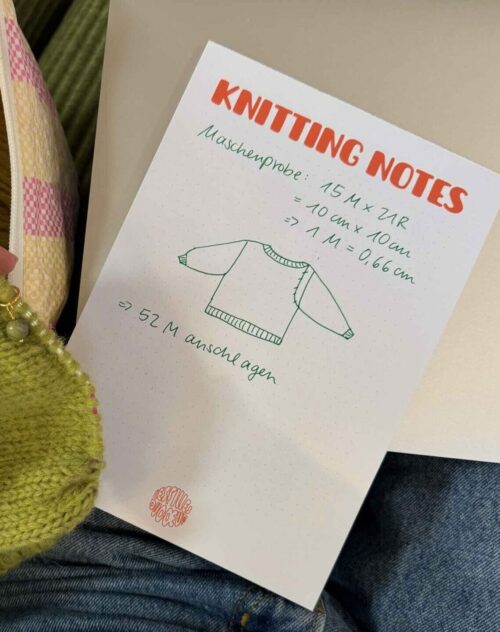 KNITTING NOTES
Maschenprobe: 15 M x 21R
= 10 cm x 10 cm
=> 1 M = 0,66 cm
=> 52 M anschlagen